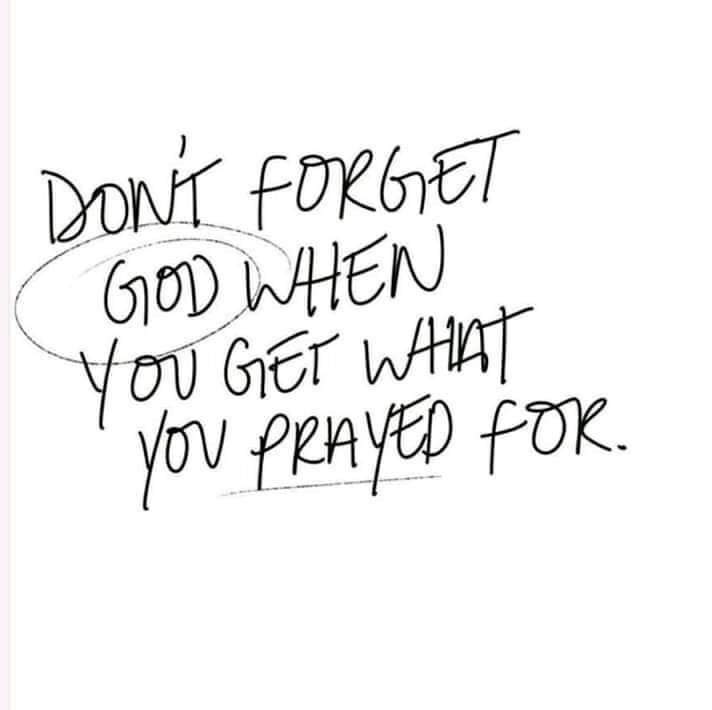 DON'T FORGET
GOD WHEN
YOU GET WHAT
YOU PRAYED FOR.